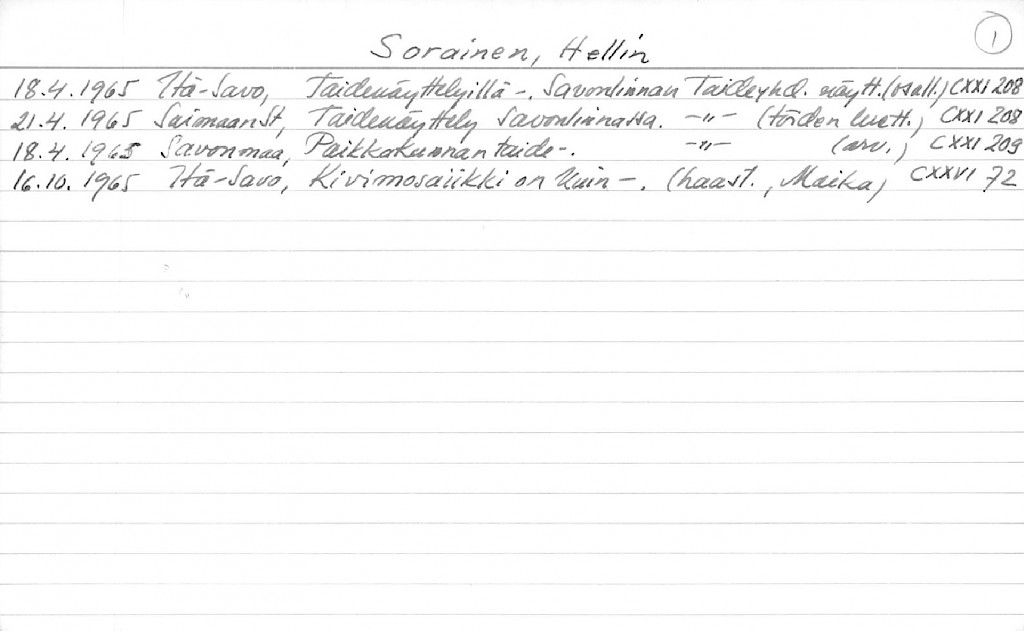 1
Sorainen, Hellin
18.4.1965 Itä-Savo, Taidenäyttelyillä -. Savonlinnan Taideyhd. näytt. (osall.) CXXI 208
21.4. 1965 Saimaan St, Taidenäyttely Savonlinnassa. -"- (töiden luett.) CXXI 208
18.4. 1965 Savonmaa, Paikkakunnan taide-. -"- (arv.) CXXI 209
16.10. 1965 Itä-Savo, Kivimosaiikki on kuin -. (haast., Maika) CXXVI 72